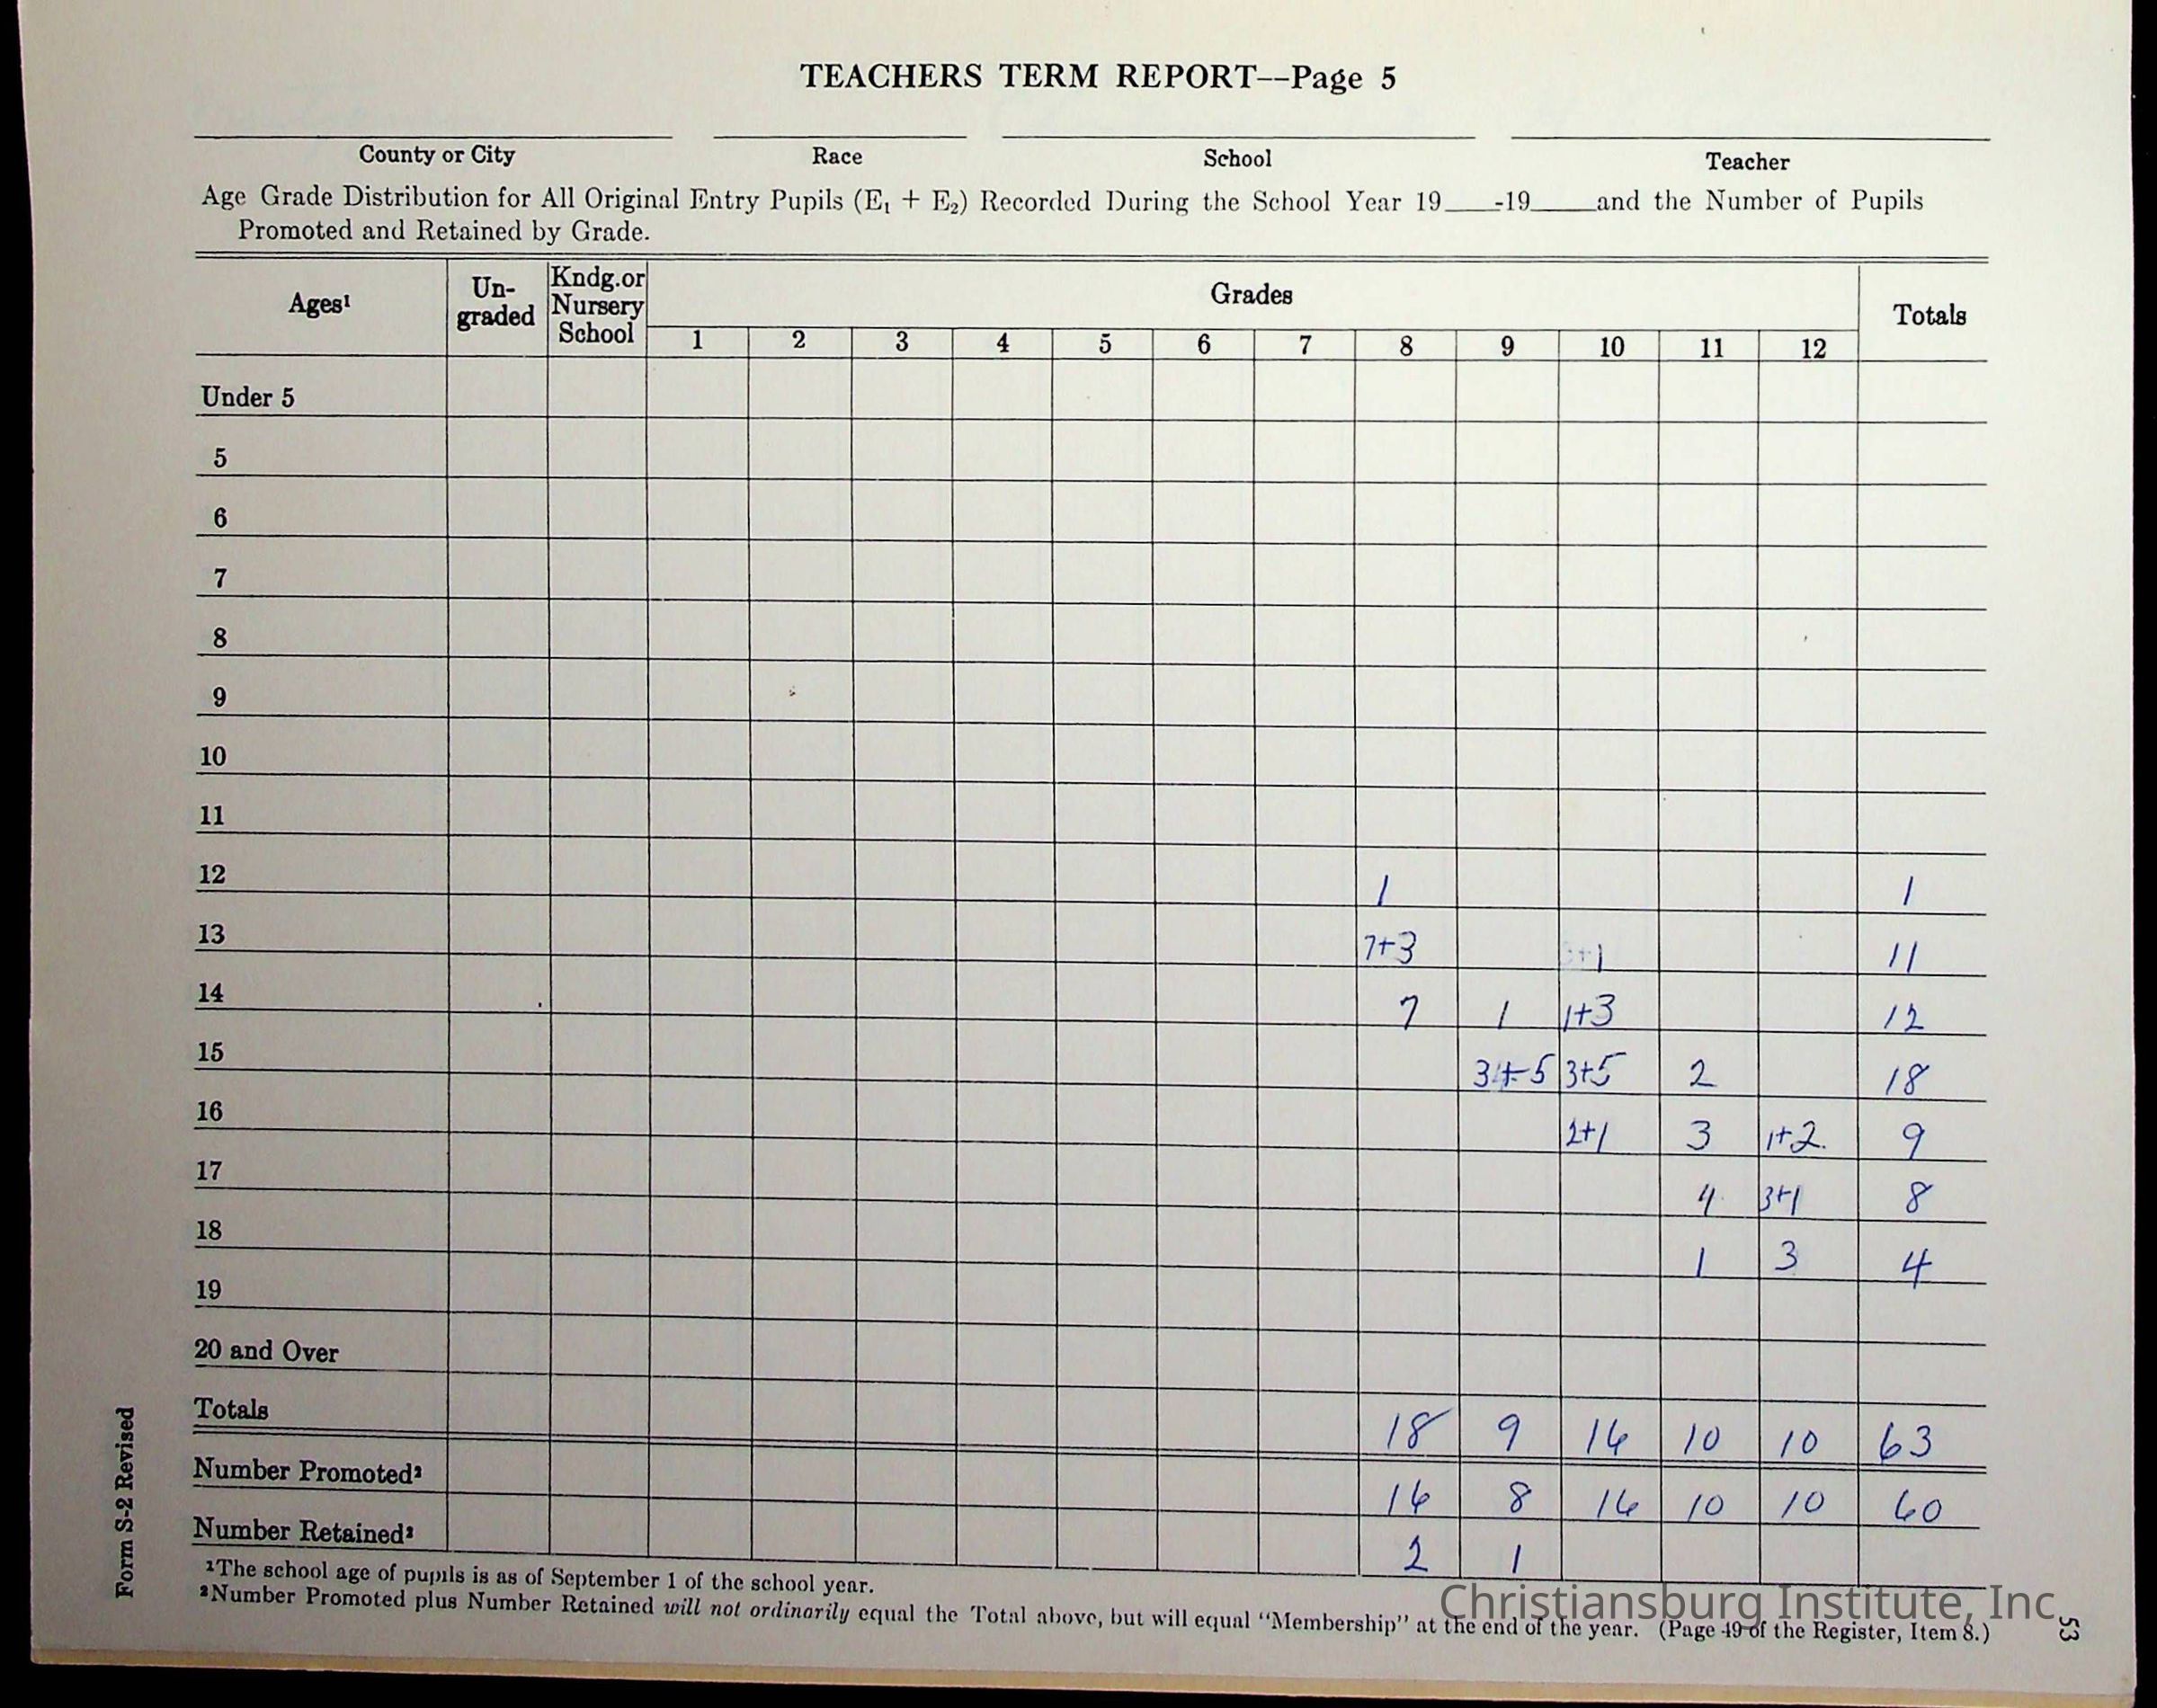 TEACHERS TERM REPORT--Page 5
County or City Race School Teacher
Age Grade Distribution for All Original Entry Pupils (E₁ + E₂) Recorded During the School Year 19___-19____and the Number of Pupils
Promoted and Retained by Grade.
Ages¹ Un-graded Kndg.or Nursery School Grades Totals
1 2 3 4 5 6 7 8 9 10 11 12
Under 5
5
6
7
8
9
10
11
12 1 1
13 7+3 +1 11
14 7 1 1+3 12
15 3+5 3+5 2 18
16 2+1 3 1+2 9
17 4 3+1 8
18 1 3 4
19
20 and Over
Totals 18 9 16 10 10 63
Number Promoted² 16 8 16 10 10 60
Number Retained² 2 1
¹The school age of pupils is as of September 1 of the school year.
²Number Promoted plus Number Retained will not ordinarily equal the Total above, but will equal "Membership" at the end of the year. (Page 49 of the Register, Item 8.)
Form S-2 Revised
53
Christiansburg Institute, Inc.